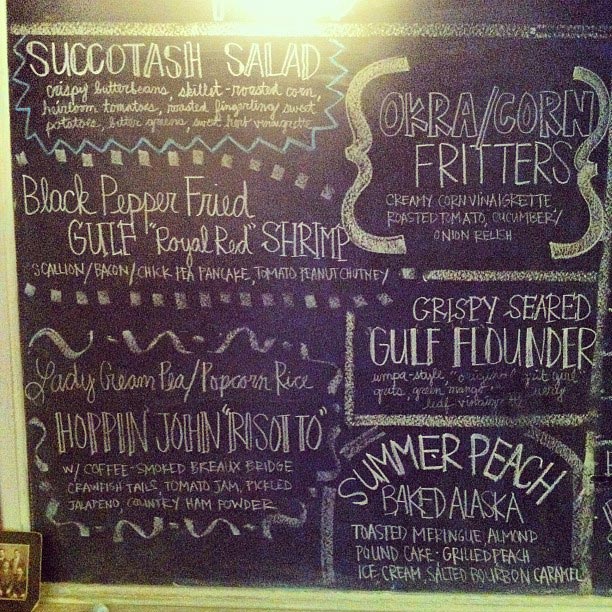 SUCCOTASH SALAD
crispy butterbeans, skillet-roasted corn,
heirloom tomatoes, roasted fingerling sweet
potatoes, bitter greens, sweet herb vinaigrette
OKRA/CORN
FRITTERS
CREAMY CORN VINAIGRETTE,
ROASTED TOMATO, CUCUMBER/
ONION RELISH
Black Pepper Fried
GULF "Royal Red" SHRIMP
SCALLION/BACON/CHICK PEA PANCAKE, TOMATO PEANUT CHUTNEY
CRISPY SEARED
GULF FLOUNDER
umpa-style, "original" "grit girl"
grits, green mango
leaf
Lady Cream Pea/Popcorn Rice
HOPPIN' JOHN "RISOTTO"
W/ COFFEE-SMOKED BREAUX BRIDGE
CRAWFISH TAILS, TOMATO JAM, PICKLED
JALAPENO, COUNTRY HAM POWDER
SUMMER PEACH
BAKED ALASKA
TOASTED MERINGUE, ALMOND
POUND CAKE - GRILLED PEACH
ICE CREAM, SALTED BOURBON CARAMEL